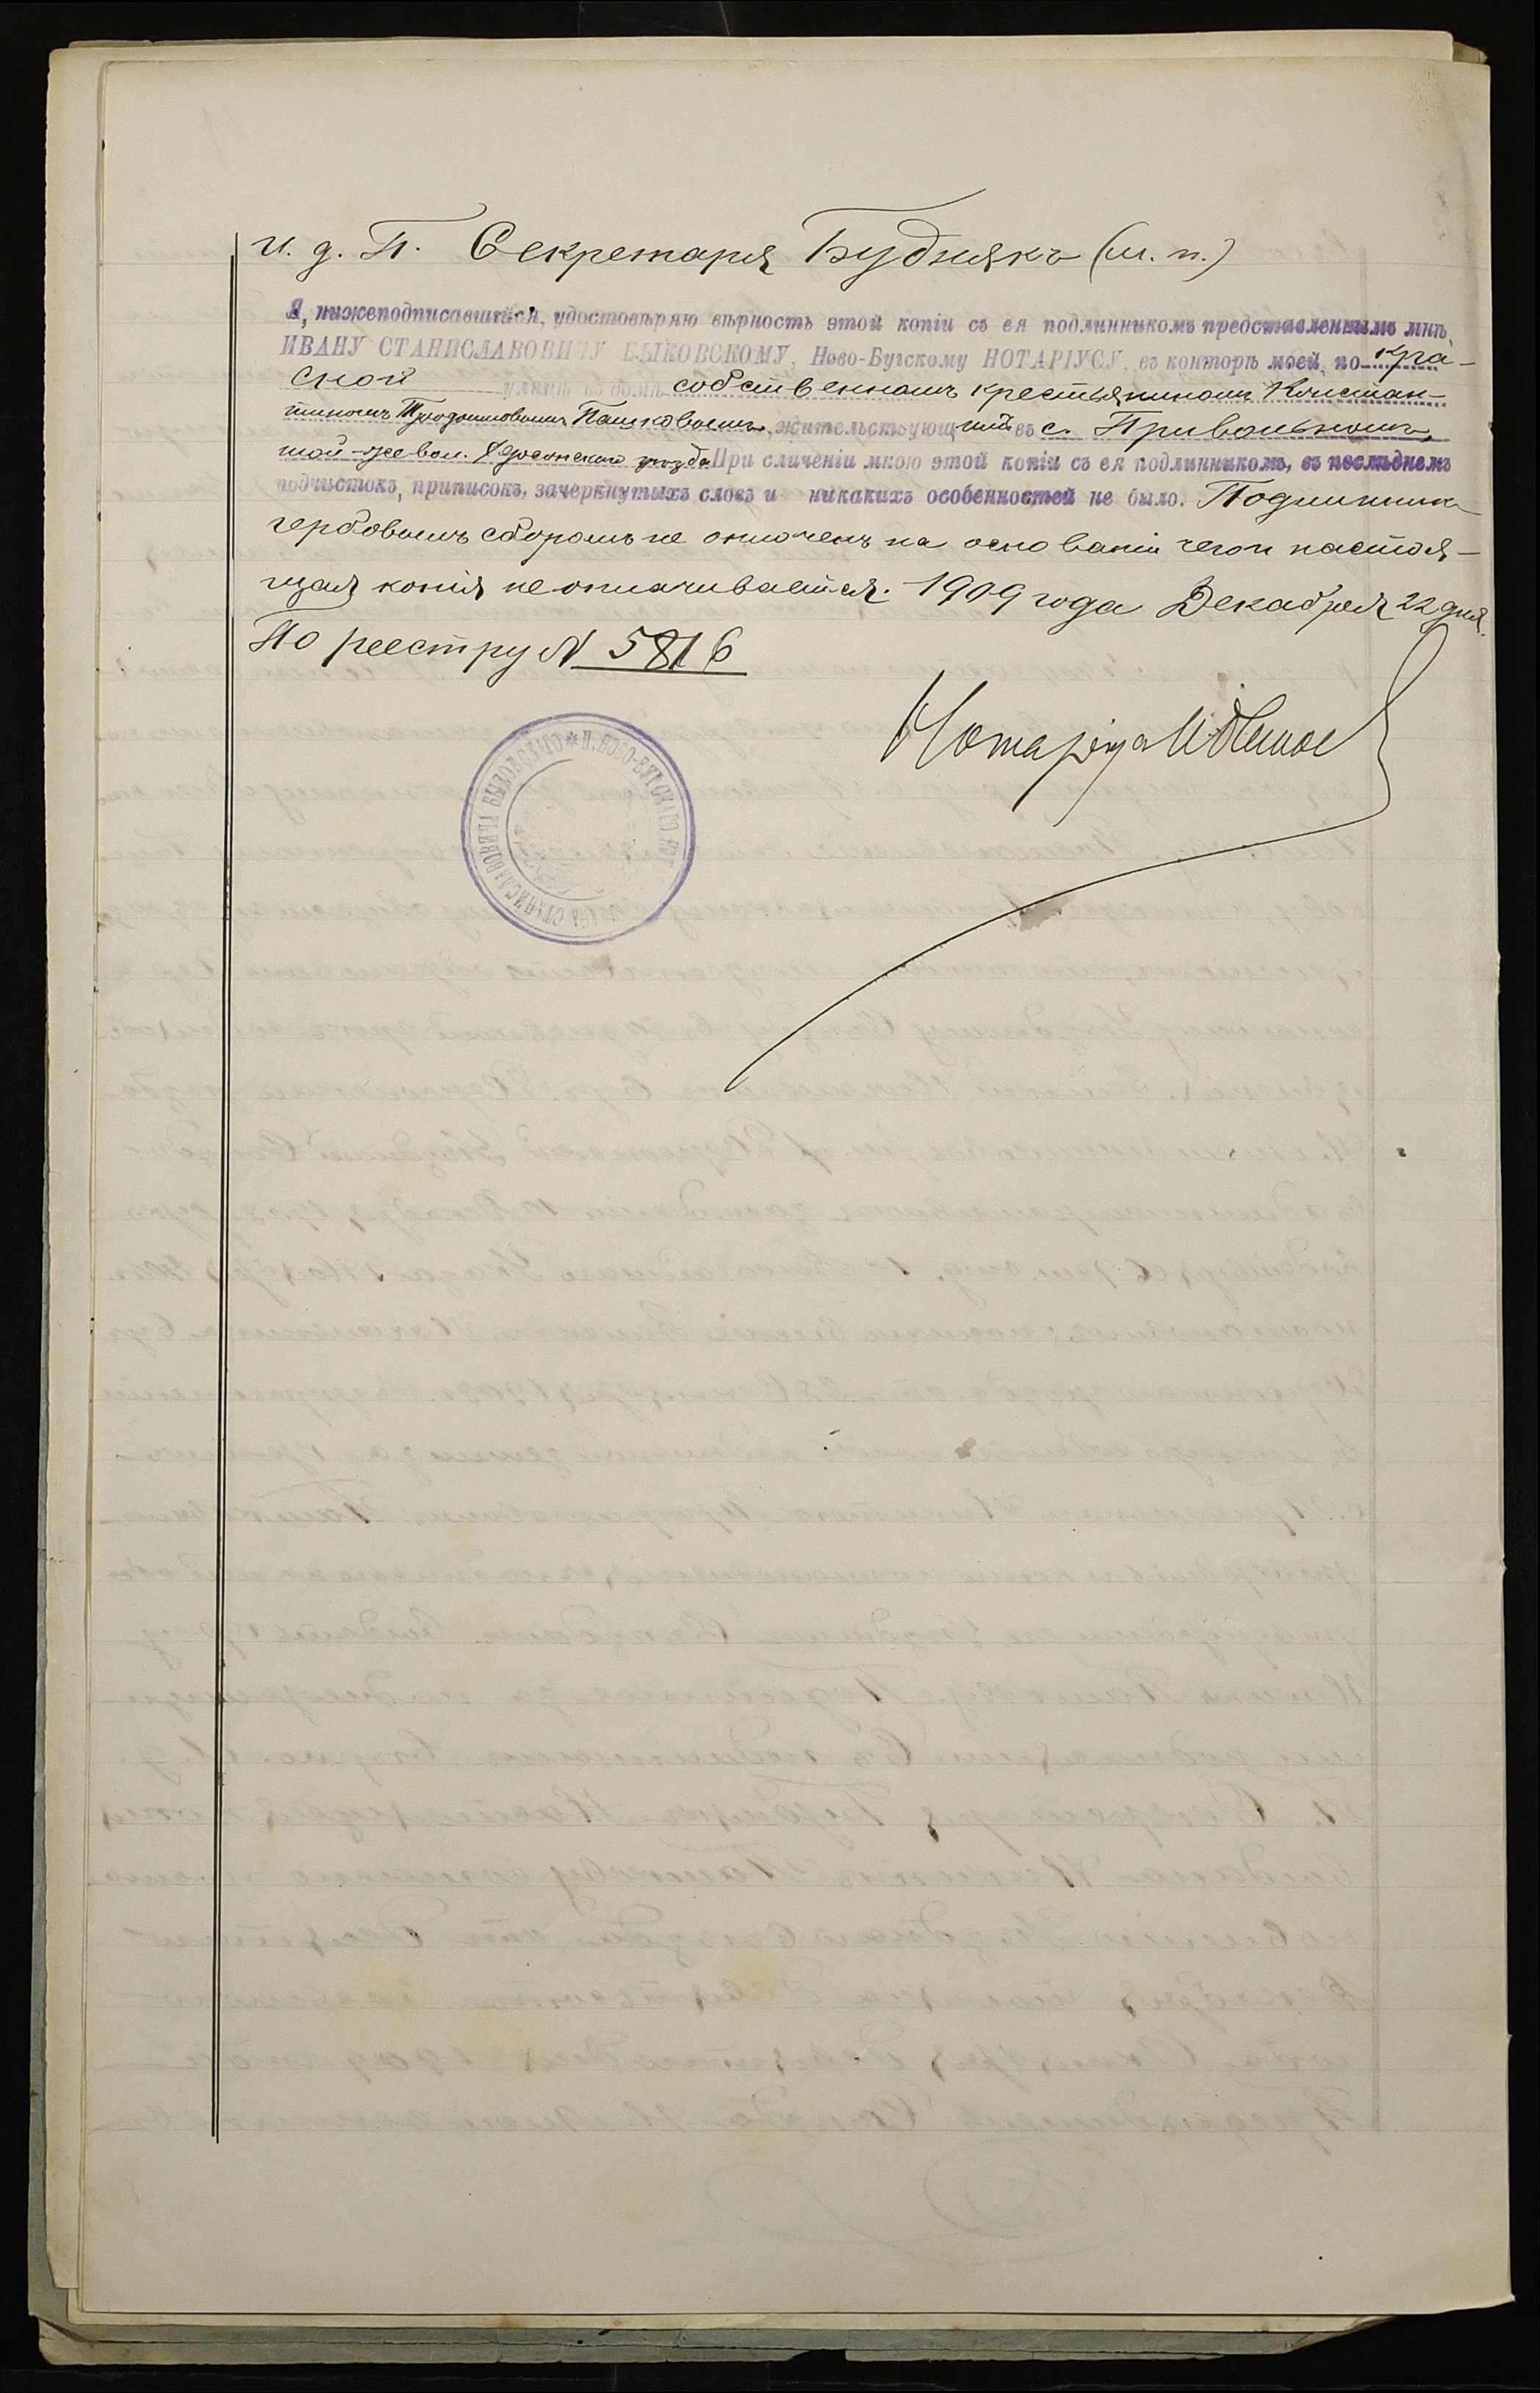 И. д. П. Секретаря Буднякъ (м. п.)
Я, нижеподписавшійся, удостовѣряю вѣрность этой копіи съ ея подлинникомъ представленнымъ мнѣ,
ИВАНУ СТАНИСЛАВОВИЧУ БЫКОВСКОМУ, Ново-Бугскому НОТАРІУСУ, въ конторѣ моей, по Кра-
сной улицѣ въ домѣ собственномъ крестьяниномъ Констан-
тиномъ Пашковымъ, жительствующимъ въ с. Привольномъ,
той-же вол. Херсонскаго уѣзда При сличеніи мною этой копіи съ ея подлинникомъ, въ послѣднемъ
подчистокъ, приписокъ, зачеркнутыхъ словъ и никакихъ особенностей не было. Подлинникъ
гербовымъ сборомъ не оплоченъ на основаніи чего и настоя-
щая копія не оплачивается. 1909 года Декабря 22 дня.
По реестру № 5816
Нотаріусъ
И. НОВО-БУГСКАГО НОТ
ИВАНА СТАНИСЛАВОВИЧА БЫКОВСКАГО *